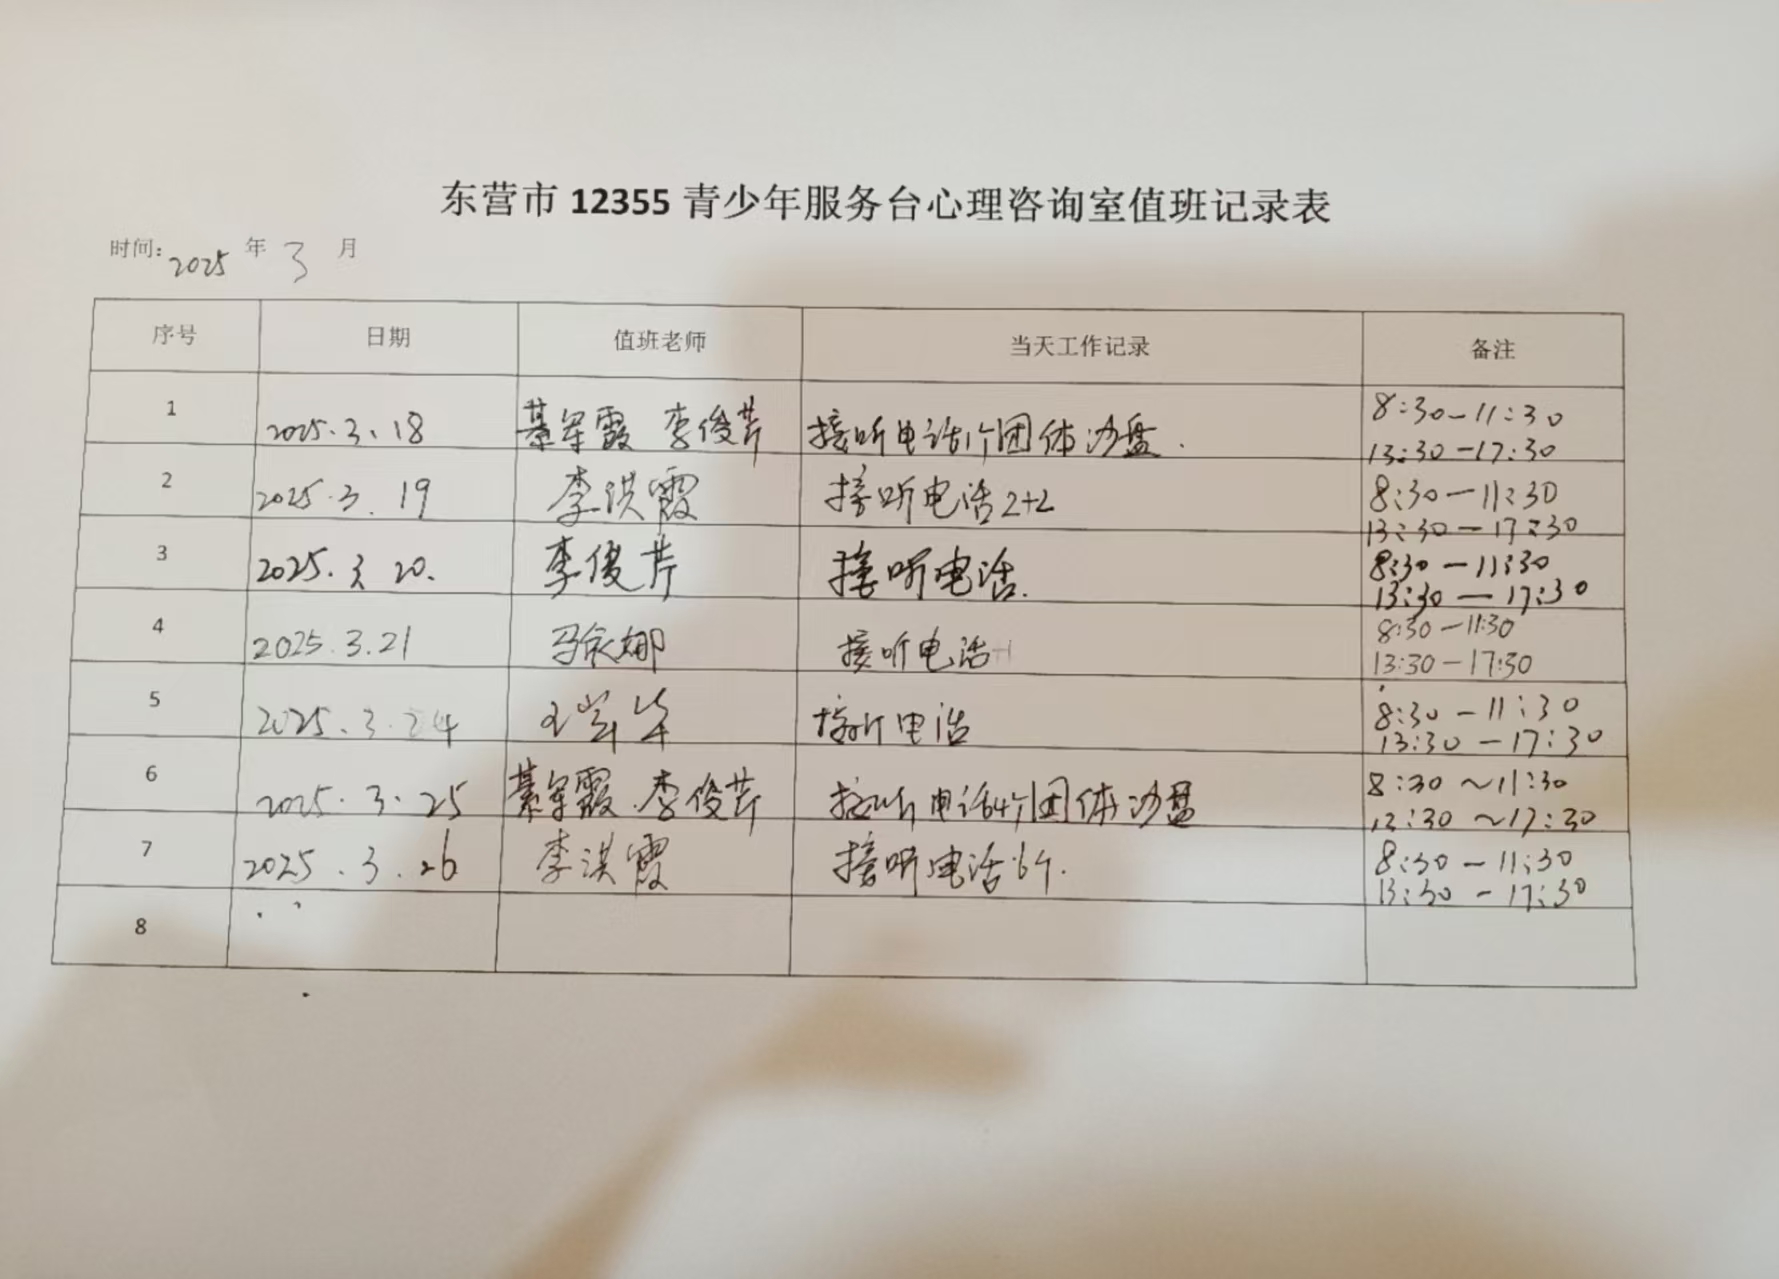 东营市 12355 青少年服务台心理咨询室值班记录表
时间: 2025 年 3 月
序号 日期 值班老师 当天工作记录 备注
1 2025.3.18 綦军霞 李俊芹 接听电话1个团体沙盘. 8:30-11:30
13:30-17:30
2 2025.3.19 李洪霞 接听电话2+2 8:30-11:30
13:30-17:30
3 2025.3.20. 李俊芹 接听电话. 8:30-11:30
13:30-17:30
4 2025.3.21 马 娜 接听电话+1 8:30-11:30
13:30-17:30
5 2025.3.24 王 华 接听电话 8:30-11:30
13:30-17:30
6 2025.3.25 綦军霞.李俊芹 接听电话4个团体沙盘 8:30~11:30
13:30~17:30
7 2025.3.26 李洪霞 接听电话6个. 8:30-11:30
13:30-17:30
8